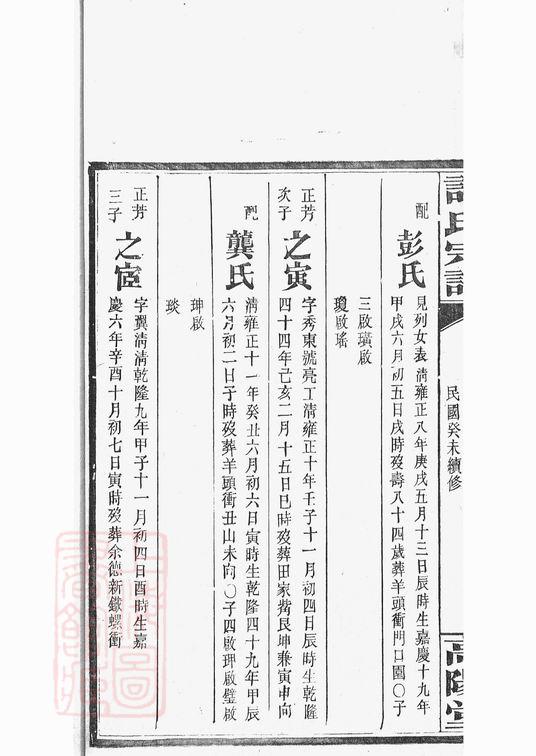 許氏宗譜
民國癸未續修
高陽堂
配
彭氏
見列女表清雍正八年庚戌五月十三日辰時生嘉慶十九年
甲戌六月初五日戌時歿壽八十四歲葬羊頭衝門口園〇子
三啟璜啟
瓊啟瑤
正芳
次子
之寅
字秀東號亮工清雍正十年壬子十一月初四日辰時生乾隆
四十四年己亥二月十五日巳時歿葬田家觜艮坤兼寅申向
配
龔氏
清雍正十一年癸丑六月初六日寅時生乾隆四十九年甲辰
六月初二日子時歿葬羊頭衝丑山未向〇子四啟理啟璧啟
珅啟
琰
正芳
三子
之宧
字翼清清乾隆九年甲子十一月初四日酉時生嘉
慶六年辛酉十月初七日寅時歿葬余德新鐵螺衝